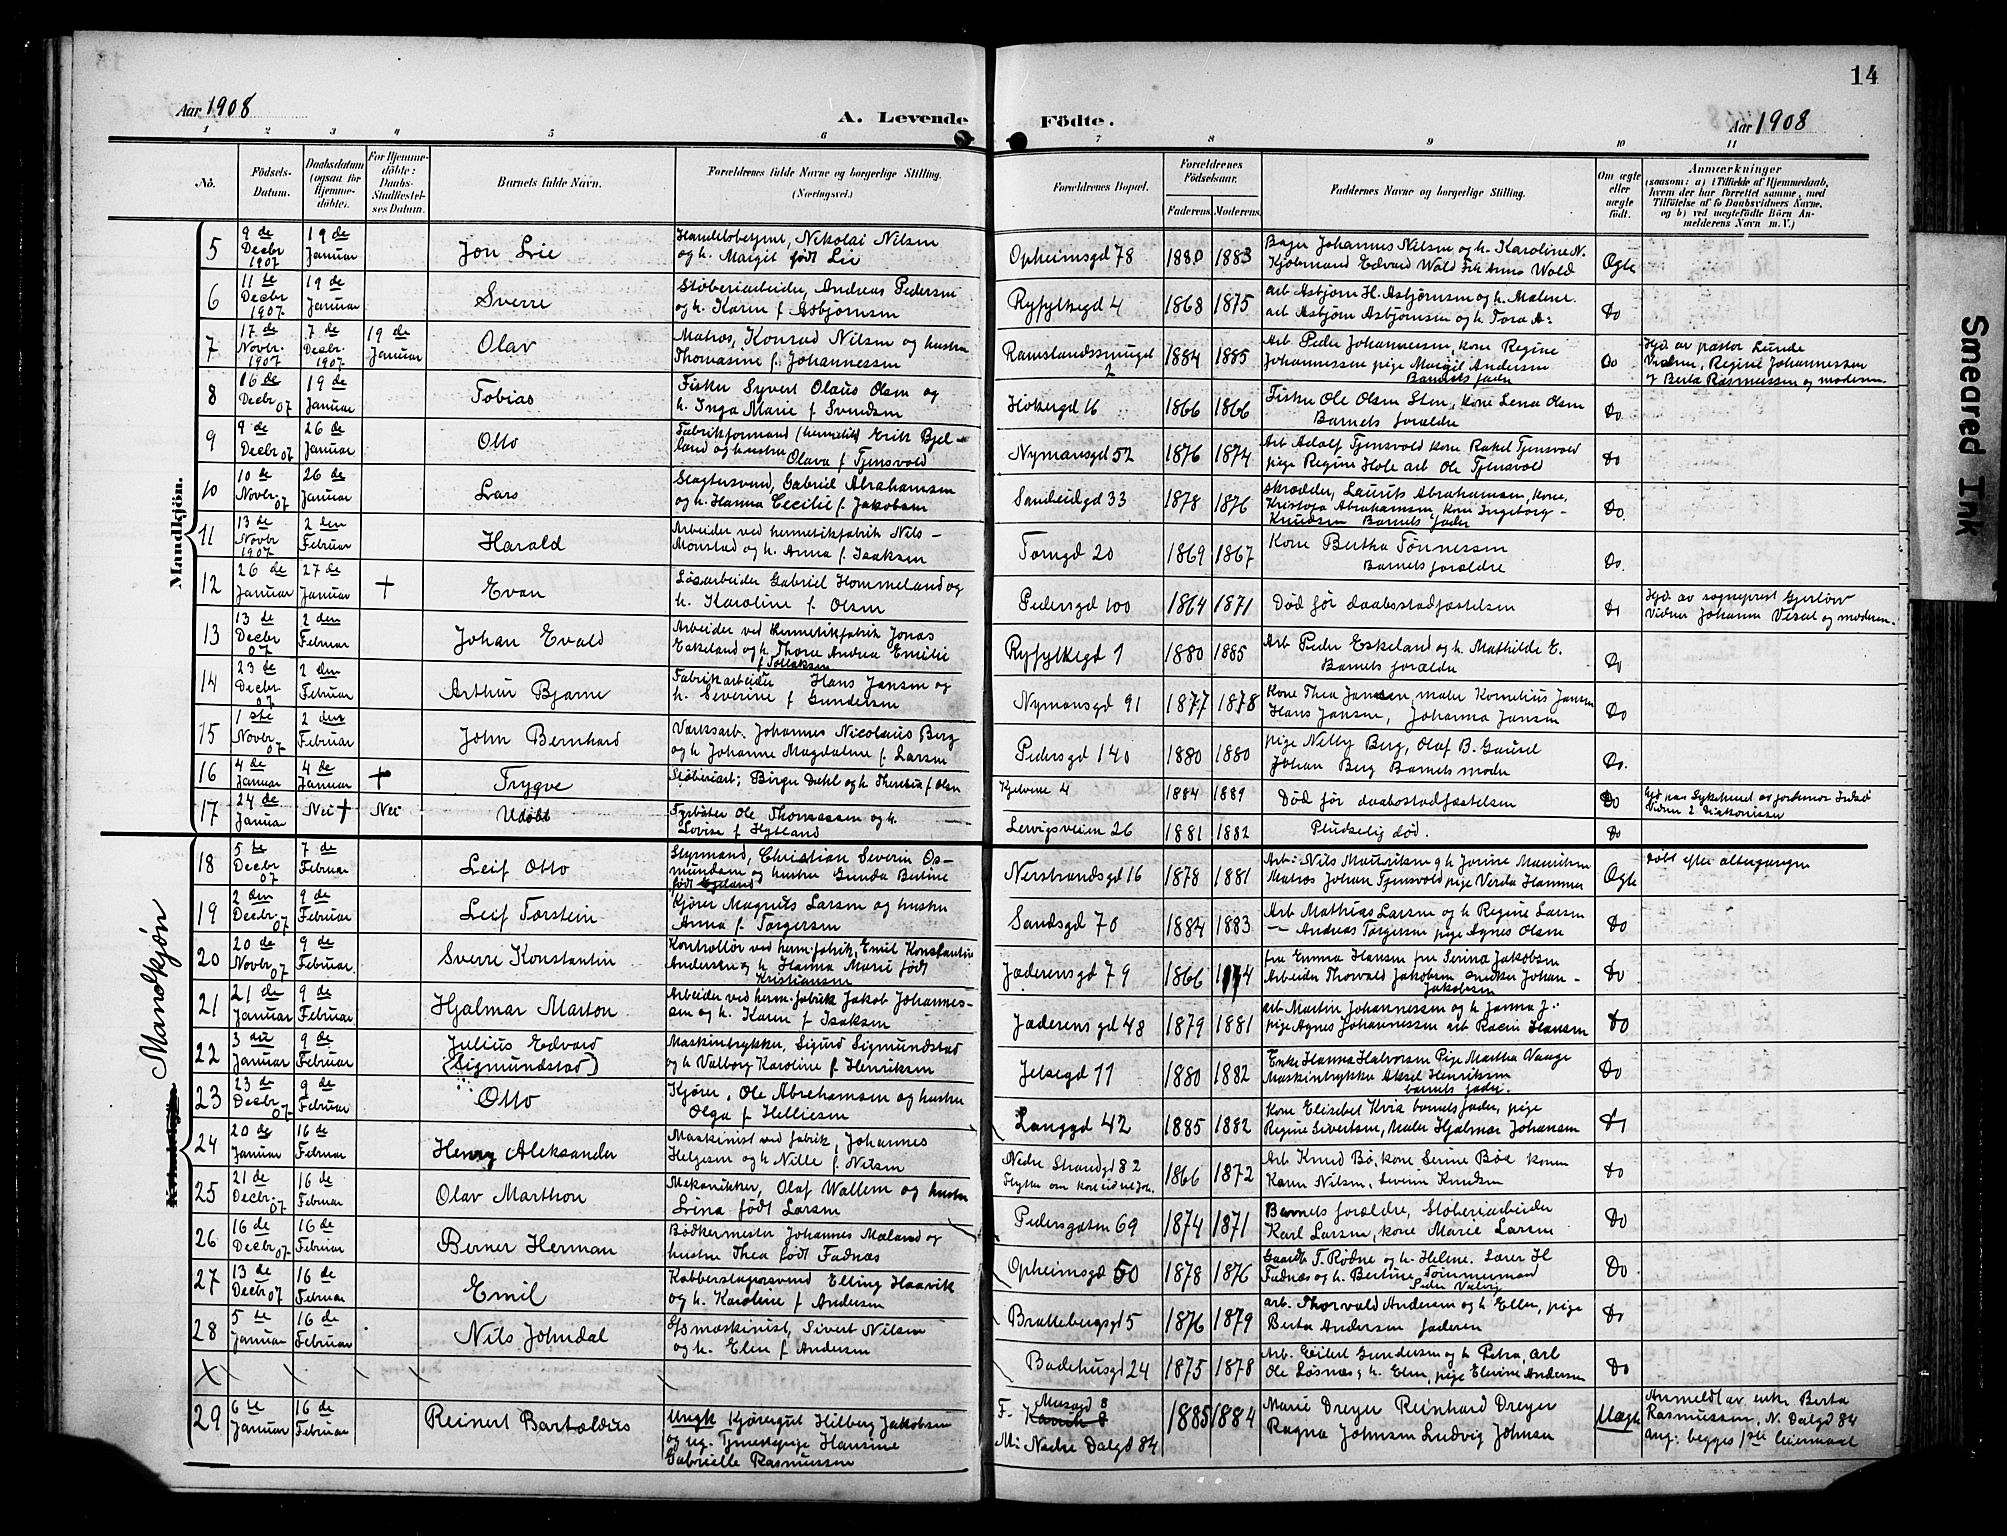 14
Aar 1908
A. Levende
Födte.
Aar 1908
1 2 3 4 5 6 7 8 9 10 11
No.
Födsels-
Datum.
Daabsdatum
(ogsaa for
Hjemme-
döbte).
For Hjemme-
döbte:
Daabs-
Stadfæstel-
ses Datum.
Barnets fulde Navn.
Forældrenes fulde Navne og borgerlige Stilling.
(Næringsvei.)
Forældrenes Bopæl.
Forældrenes
Födselsaar.
Faderens. Moderens.
Faddernes Navne og borgerlige Stilling.
Om ægte
eller
uægte
födt.
Anmærkninger
(saasom: a) i Tilfælde af Hjemmedaab,
hvem der har forrettet samme, med
Tilföielse af to Daabsvidners Navne,
og b) ved uægtefödte Börn An-
melderens Navn m. V.)
Mandkjön.
5 9 de Decbr 1907 19 de Januar Jon Lie
Nikolai Nilsen
og h. Margit født Lie
Opheimsgd 78 1880 1883
Bager Johannes Nilsen og h. Karoline N.
Ægte
6 11 te Decbr 1907 19 de Januar Sverre
Støberiarbeider, Andreas Pedersen
og h. Karen f Asbjørnsen
Ryfylkegd 4 1868 1875
arb Asbjørn H. Asbjørnsen og h. Malene.
arb Asbjørn Asbjørnsen og h Tora A:
Do
7 17 de Novbr. 1907 7 de Decbr. 1907 19 de Januar Olav
Matros, Konrad Nilsen og hustru
Thomasine f. Johannessen
Ramslandssmuget 2 1884 1885
Arb. Peder Johannessen, kone Regine
Johannessen pige Margit Andersen
Barnets fader
Do
Hjd av pastor Lunde
Vidne, Regine Johannessen
og Berta Rasmussen og moderen.
8 16 de Decbr 07 19 de Januar Tobias
Fisker Syvert Olaus Olsen og
h. Inga Marie f Svendsen
16 1866 1866
Fisker Ole Olsen Sten, kone Lena Olsen
Barnets forældre
Do
9 9 de Decbr 07 26 de Januar Otto
Fabrikformand (hermetik) Erik Bjel-
land og hustru
Olava f Tjensvold
Nymansgd 52 1876 1874
Arb Adolf Tjensvold kone Rakel Tjensvold
pige Regine Hole arb Ole Tjensvold
Do
10 10 de Novbr. 07 26 de Januar Lars
Slagtersvend, Gabriel Abrahamsen
og h. Hanna Cecilie f Jakobsen
Sandeidgd 33 1878 1876
Skrædder, Laurits Abrahamsen, kone,
Kristofa Abrahamsen, kone Ingeborg
Knudsen Barnets fader
Do.
11 13 de Novbr 1907 2 den Februar Harald
Arbeider ved hermetikfabrik Nils
Mønstad og h. Anna f. Isaksen
Torngd 20 1869 1867
Kone Bertha Tønnessen
Barnets forældre
Do.
12 26 de Januar 27 de Januar + Evan
Løsarbeider Gabriel Hommeland og
h. Karoline f. Olsen
Pedersgd 100 1864 1871
Død før daabsstadfæstelsen
Do
Hjd av sogneprest Gjerløv
Vidner Johanne og moderen.
13 13 de Decbr 07 2 den Februar Johan Evald
Arbeider ved hermetikfabrik Jonas
Eskeland og h. Thora Andrea Emilie
f Tollaksen
Ryfylkegd 1 1880 1885
Arb Peder Eskeland og h. Mathilde E.
Barnets forældre
Do
14 23 de Decbr 07 2 den Februar Arthur Bjarne
Fabrikarbeider Hans Jansen og
h. Severine f Gundersen
Nymansgd 91 1877 1878
Kone Thea Jansen, maler Kornelius Jansen
Hans Jansen, Johanna Jansen
Do
15 1 ste Novbr. 07 2 den Februar John Bernhard
Værksarb. Johannes Nicolaus Berg
og h Johanne Magdalene f. Larsen
Pedersgd 140 1880 1880
pige Nelly Berg, Olaf B. Gausel
Johan Berg Barnets moder
Do.
16 4 de Januar 4 de Januar + Trygve
Støberiarb; Birger Dahl og h. Theresia f Olsen
Kjelvene 4 1884 1889
Død før daabsstadfæstelsen
Do
17 24 de Januar Nei + Nei Udøbt
Fyrbøter Ole Thomassen og h.
Lovise f Hytland
Lervigsveien 26 1881 1882
Pludselig død.
Do
Mandkjøn
18 5 te Decbr 07 7 de Februar Leif Otto
Styrmand, Christian Severin Os-
mundsen og hustru Gunda Bertine
født Egeland
Nerstrandsgd 16 1878 1881
Arb: Nils Mauritsen og h Jorine Mauritsen
Matros Johan Tjensvold pige Verda Hammer
Ægte
døbt efter altergangen
19 2 den Decbr. 07 9 de Februar Leif Torstein
Kjører Magnus Larsen og hustru
Anna f. Torgersen
Sandsgd 70 1884 1883
Arb Mathias Larsen og h Regine Larsen
Andreas Torgersen pige Agnes Olsen
Do
20 20 de Novbr 07 9 de Februar. Sverre Konstantin
Kontrollør ved herm. fabrik, Emil Konstantin
Andersen og h. Hanna Marie født
Kristiansen
Jæderensgd 79 1866
fru Emma Hansen fru Serina Jakobsen
Arbeider Thorvald Jakobsen snedker Johan
Jakobsen
Do
21 21 de Januar 9 de Februar Hjalmar Marton
Arbeider ved herm. fabrik Jakob Johannes-
sen og h. Karen f Isaksen
Jæderensgd 48 1879 1881
arb. Martin Johannessen og h Janna J.
pige Agnes Johannessen arb Hansen
Do
22 3 die Januar 9 de Februar Julius Edvard
(Sigmundstad)
Maskintrykker, Sigurd Sigmundstad
og h Valborg Karoline f Henriksen
Jelsegd 11 1880 1882
Enke Hanna Halvorsen Pige Martha Vaage
Maskintrykker Aksel Henriksen
barnets fader.
Do
23 23 de Decbr. 07 9 de Februar Otto
Kjører, Ole Abrahamsen og hustru
Olga f Helliesen
Langgd 42 1885 1882
Kone Elisebet Kvia barnets fader, pige
Regine Sivertsen, Maler Hjalmar Johansen
Do
24 20 de Januar 16 de Februar Henry Aleksander
Maskinist ved fabrik, Johannes
Helgesen og h. Nille f. Nilsen
Nedre Strandgd 82 1866 1872
Arb Knud Bø, kone Serine Bøe konen
Karen Nilsen, Severin Knudsen
Do
25 21 de Decbr. 07 16 de Februar Olav Marthon
Mekanikker, Olaf Wallem og hustru
født Larsen
Pedersgaten 69 1874 1871
Barnets forældre, Støberiarbeider
Karl Larsen, kone Marie Larsen
Do
26 16 de Decbr. 07 16 de Februar Berner Herman
Bødkermester Johannes Maland og
hustru Thea født Fadnæs
Opheimsgd 50 1878 1876
T. Rødne og h. Helene. Lærer H
Fadnæs og h. Bertine Tømmermand
Do
27 13 de Decbr 07 16 de Februar Emil
Kobberslagersvend Elling Haavik
og h. Karoline f Andersen
Brattebergsgd 5 1876 1879
arb. Thorvald Andersen og h Ellen, pige
Berta Andersen faderen
Do
28 5 te Januar 16 de Februar Nils Johndal
maskinist, Sivert Nilsen
og h. Elen f Andersen
Badehusgd 24 1875 1878
Arb. Eilert Gundersen og h Petra, arb
Ole Løsnæs, h. Elen, pige Elevine Andersen
Do
29 6 te Januar 16 de Februar Reinert Bartoldius
Ungk Kjøregut Hilberg Jakobsen
og ug. Tjenestepige Hansine
Gabrielle Rasmussen
F.
M: Nedre Dalgd 84
1885 1884
Marie Dreyer Reinhard Dreyer
Ragna Johnsen Ludvig Johnsen
Uægte
Anmeldt av enke Berta
Rasmussen, N. Dalgd 84
ang: begges 1ste leiermaal
Smeared Ink